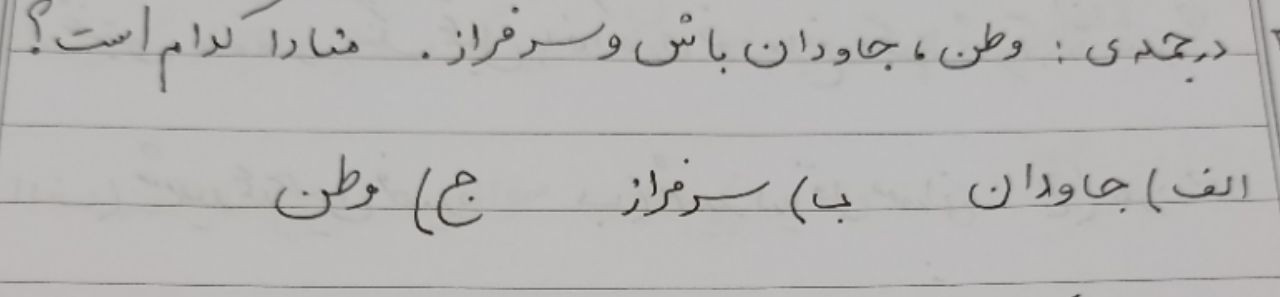 در جمله ی : وطن ، جاودان باش و سرفراز . منادا کدام است ؟
الف ) جاودان ب ) سرفراز ج ) وطن